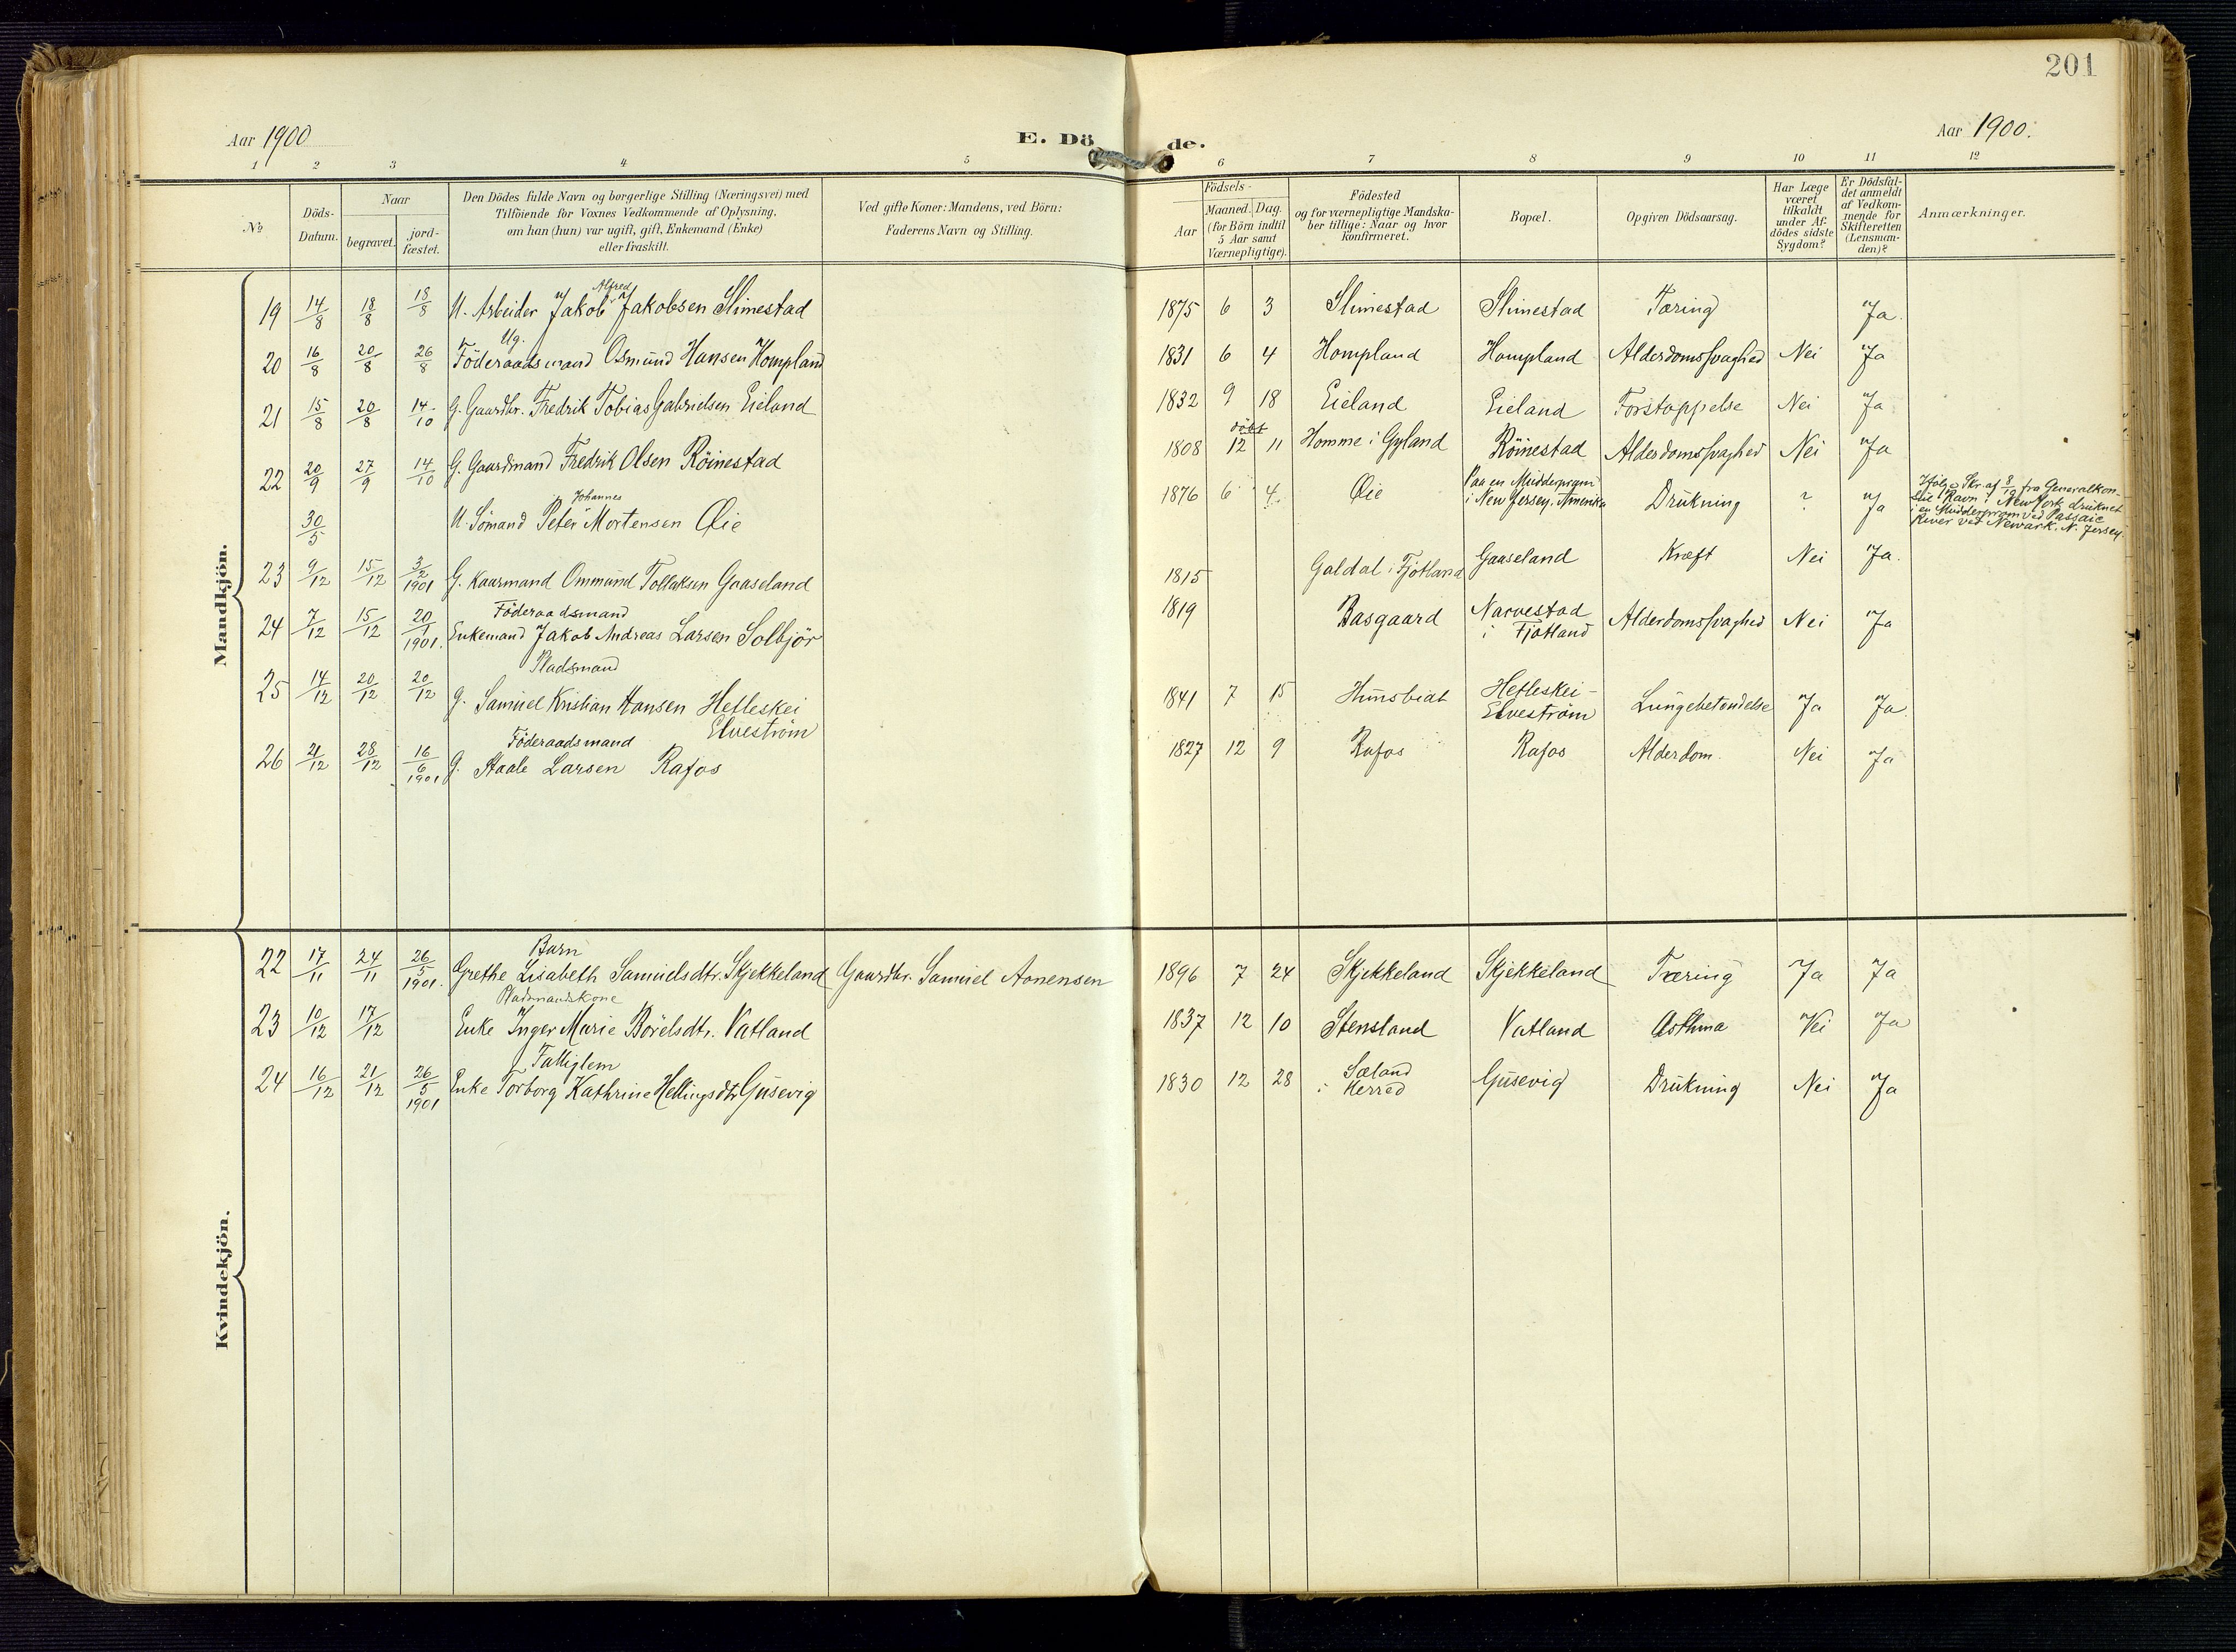 201
Aar 1900
E. Dö
de.
Aar 1900.
1 2 3 4 5 6 7 8 9 10 11 12
No
Döds-
Datum.
Naar
begravet.
jord-
fæstet.
Den Dödes fulde Navn og borgerlige Stilling (Næringsvei) med
Tilföiende for Voxnes Vedkommende af Oplysning.
om han (hun) var ugift, gift, Enkemand (Enke)
eller fraskilt.
Ved gifte Koner: Mandens, ved Börn:
Faderens Navn og Stilling.
Födsels-
Aar
Maaned. Dag.
(for Börn indtil
5 Aar samt
Værnepligtige).
Födested
og for værnepligtige Mandska-
ber tillige: Naar og hvor
konfirmeret.
Bopæl.
Opgiven Dödsaarsag.
Har Læge
været
tilkaldt
under Af-
dödes sidste
Sygdom?
Er Dödsfal-
det anmeldt
af Vedkom-
mende for
Skifteretten
(Lensman-
den)?
Anmærkninger.
Mandkjön.
Alfred
19 14/8 18/8 18/8 U. Arbeider Jakob Jakobsen Slimestad 1875 6 3 Slimestad Slimestad Tæring Ja.
Ug.
20 16/8 20/8 26/8 Föderaadsmand Osmund Hansen Hompland 1831 6 4 Hompland Hompland Alderdomssvaghed Nei Ja
21 15/8 20/8 14/10 G. Gaardbr. Fredrik Tobias Gabrielsen Eieland 1832 9 18 Eieland Eieland Forstoppelse Nei Ja
döbt
22 20/9 27/9 14/10 G. Gaardmand Fredrik Olsen Röinestad 1808 12 11 Homme i Gyland Röinestad Alderdomssvaghed Nei Ja
Johannes
30/5 U. Sömand Peter Mortensen Øie 1876 6 4. Øie
Paa en Mudderpram
i New Jersey. Amerika
Drukning ? Ja
Ifölge Skr. af 8/12 fra Generalkon-
sul Ravn i New York druknet
i en Mudderpram ved Passaic
River ved Newark. N. Jersey.
23 9/12 15/12 3/2 1901 G. Kaarmand Ommund Tollaksen Gaaseland 1815 Galdal i Fjotland Gaaseland Kræft Nei Ja.
Föderaadsmand
24 7/12 15/12 20/1 1901. Enkemand Jakob Andreas Larsen Solbjör 1819 Basgaard Narvestad
i Fjotland
Alderdomssvaghed Nei Ja
Pladsmand
25 14/12 20/12 20/12 G. Samuel Kristian Hansen Hefleskei
Elveström
1841 7 15 Hefleskei-
Elveström
Lungebetændelse Ja Ja.
Föderaadsmand
26 21/12 28/12 16/6 1901 G. Staale Larsen Rafos 1827 12 9 Rafos Rafos Alderdom. Nei Ja
Kvindekjön.
Barn
22 17/11 24/11 26/5 1901. Grethe Lisabeth Samuelsdtr. Skjekkeland Gaardbr. Samuel Aanensen 1896 7 24 Skjekkeland Skjekkeland Tæring Ja Ja
Pladsmandskone
23 10/12 17/12 Enke Inger Marie Börelsdtr. Vatland 1837 12 10 Stensland Vatland Asthma Nei Ja
Fattiglem
24 16/12 21/12 26/5 1901 Enke Torborg Kathrine Hellingsdtr Gusevig 1830 12 28 Sæland
i Herred
Gusevig Drukning Nei Ja